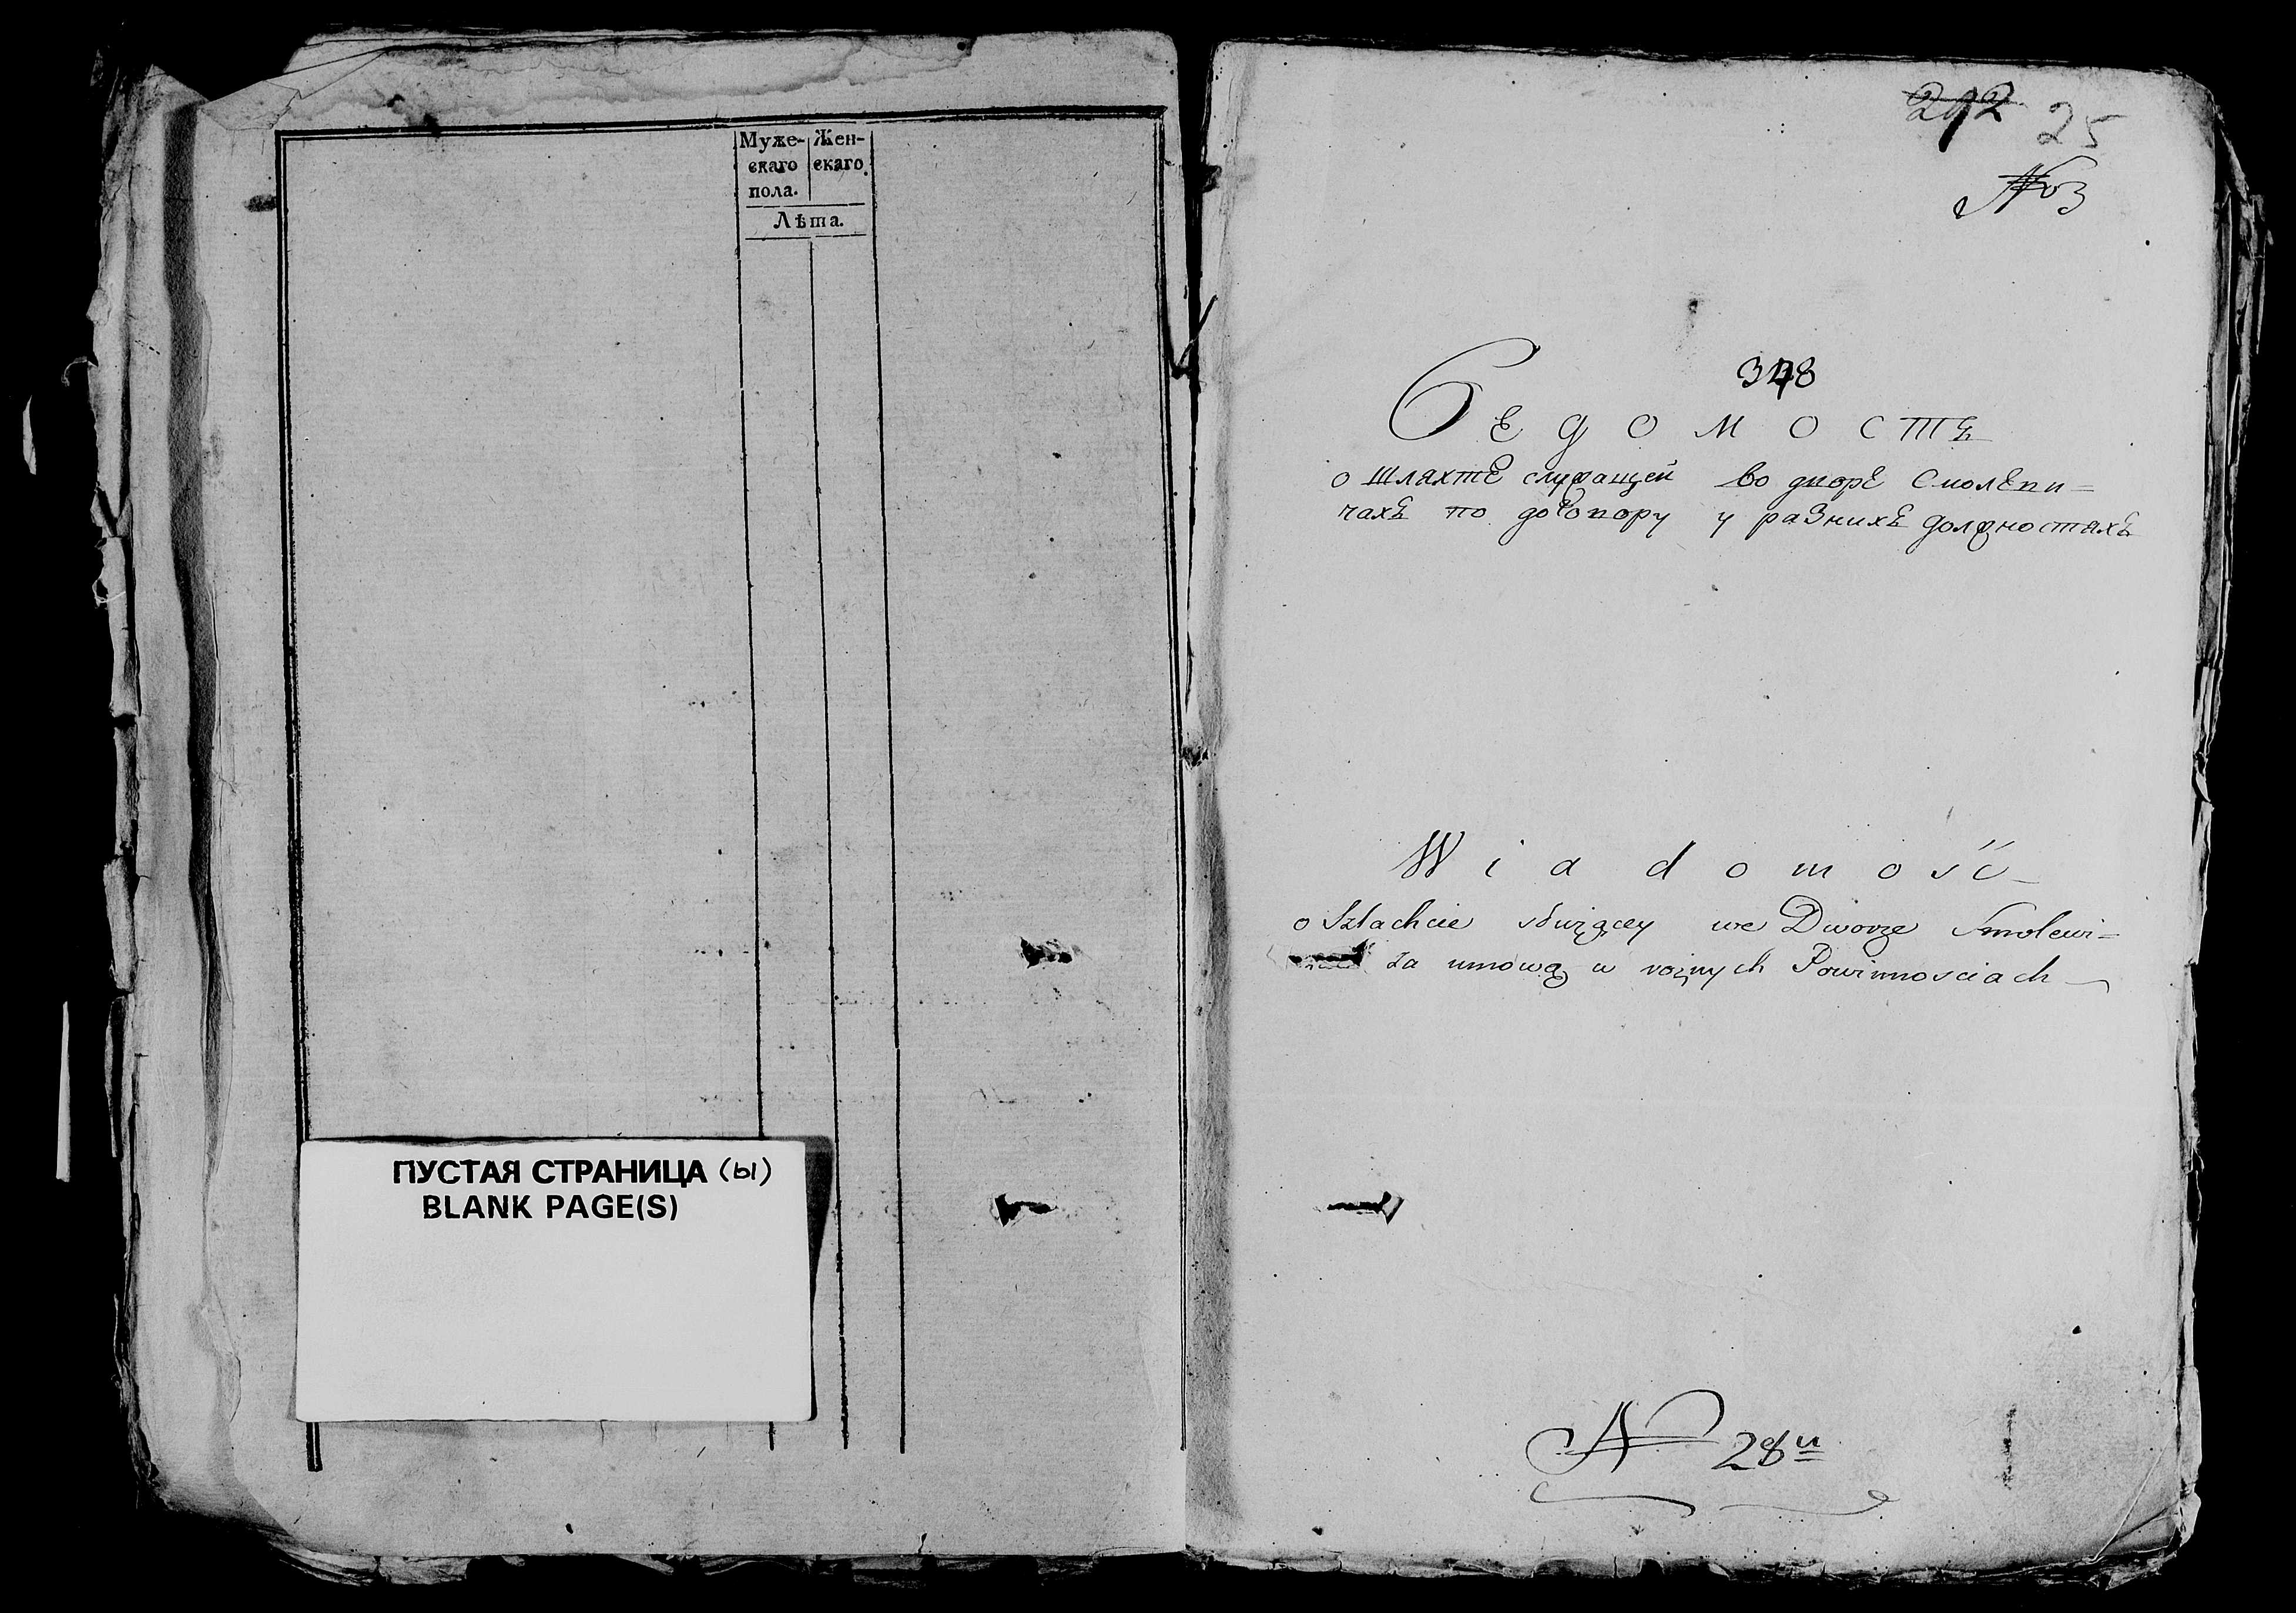 Муже- Жен-
скаго скаго.
пола.
Лѣта.
ПУСТАЯ СТРАНИЦА (ы)
BLANK PAGE(S)
25
№ 3
Ведомостъ
о шляхтѣ служащей во дворѣ Смолеви=
чахъ по договору у разнихъ должностяхъ
Wiadomość
o Szlachcie służącey we Dworze Smolewi=
za umową w rożnych Powinnosciach
№ 28й